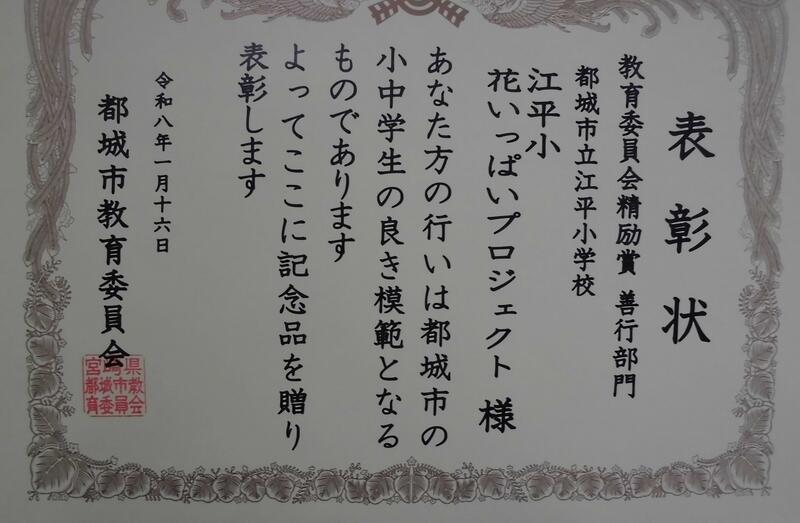 表彰状
教育委員会精励賞 善行部門
都城市立江平小学校
江平小
花いっぱいプロジェクト 様
あなた方の行いは都城市の
小中学生の良き模範となる
ものであります
よってここに記念品を贈り
表彰します
令和八年一月十六日
都城市教育委員会
宮崎県
都城市教
育委員会